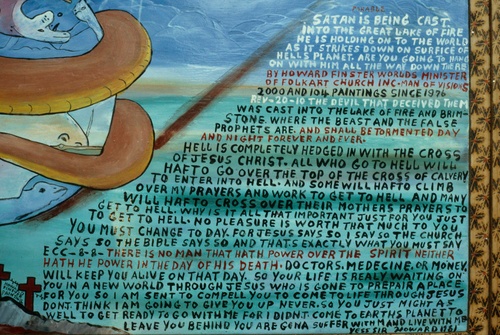 SATAN IS BEING CAST
INTO THE GREAT LAKE OF FIRE
HE IS HOLDING ON TO THE WORLD
AS IT STRIKES DOWN ON SURFICE OF
HELLS PLANET. ARE YOU GOING TO HANG
ON WITH HIM ALL THE WAY DOWN THERE
BY HOWARD FINSTER WORLDS MINISTER
OF FOLKART CHURCH INC-MAN OF VISIONS
2000 AND 104 PAINTINGS SINCE 1976
REV-20-10 THE DEVIL THAT DECEIVED THEM
WAS CAST INTO THE LAKE OF FIRE AND BRIM-
STONE. WHERE THE BEAST AND THE FALSE
PROPHETS ARE. AND SHALL BE TORMENTED DAY
AND NIGHT FOREVER AND EVER.
HELL IS COMPLETELY HEDGED IN WITH THE CROSS
OF JESUS CHRIST. ALL WHO GO TO HELL WILL
HAFT TO GO OVER THE TOP OF THE CROSS OF CALVERY
TO ENTER INTO HELL. AND SOME WILL HAFTO CLIMB
OVER MY PRAYERS AND WORK TO GET TO HELL. AND MANY
WILL HAFTO CROSS OVER THEIR MOTHERS PRAYERS TO
GET TO HELL. WHY IS IT ALL THAT IMPORTANT JUST FOR YOU JUST
TO GET TO HELL. NO PLEASURE IS WORTH THAT MUCH TO YOU
YOU MUST CHANGE TO DAY. FOR JESUS SAYS SO I SAY SO THE CHURCH
SAYS SO THE BIBLE SAYS SO AND THATS EXACTLY WHAT YOU MUST SAY
ECC-8-8- THERE IS NO MAN THAT HATH POWER OVER THE SPIRIT NEITHER
HATH HE POWER IN THE DAY OF HIS DEATH. DOCTORS. MEDECINE. OR MONEY.
WILL KEEP YOU ALIVE ON THAT DAY. SO YOUR LIFE IS REALY WAITING ON
YOU IN NEW WORLD THROUGH JESUS WHO IS GONE TO PREPAIR A PLACE
FOR YOU SO I AM SENT TO COMPELL YOU TO COME TO LIFE THROUGH JESUS
DONT THINK I AM GOING TO GIVE YOU UP NEVER. SO YOU JUST MIGHT AS
WELL TO GET READY TO GO WITH ME FOR I DIDNT COME TO EARTHS PLANET TO
LEAVE YOU BEHIND YOU ARE GONA SUFFER WITH ME AND LIVE WITH ME
YES SIR.